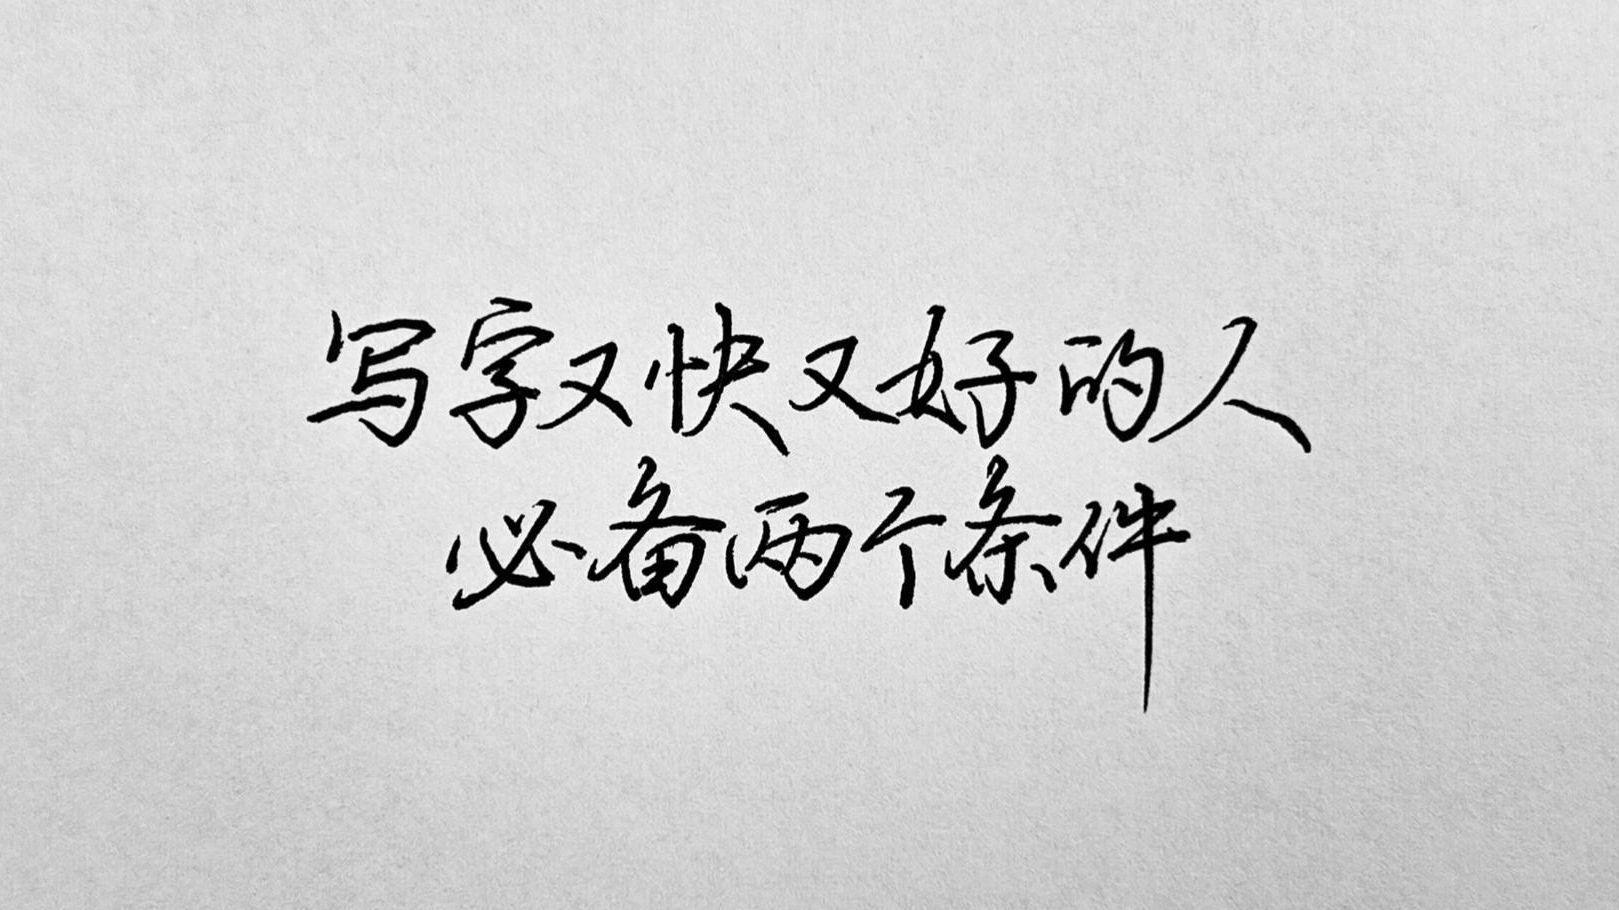 写字又快又好的人
必备两个条件